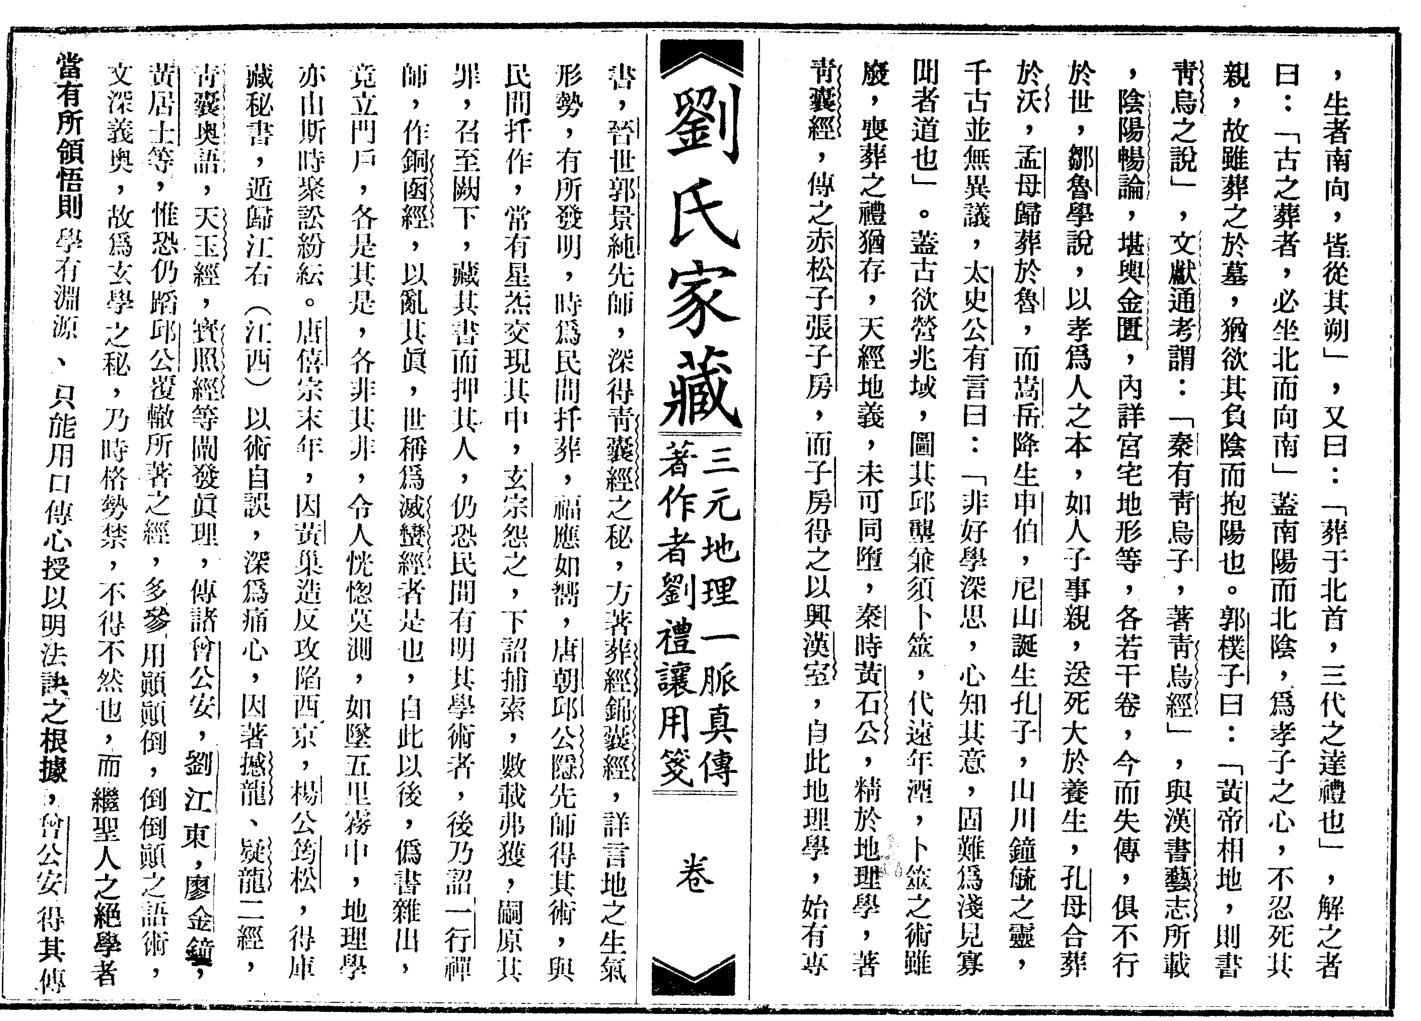 ，生者南向，皆從其朔」，又曰：「葬于北首，三代之達禮也」，解之者
曰：「古之葬者，必坐北而向南」蓋南陽而北陰，爲孝子之心，不忍死其
親，故雖葬之於墓，猶欲其負陰而抱陽也。郭樸子曰：「黃帝相地，則書
靑烏之說」，文獻通考謂：「秦有靑烏子，著靑烏經」，與漢書藝志所載
，陰陽暢論，堪輿金匱，內詳宮宅地形等，各若干卷，今而失傳，俱不行
於世，鄒魯學說，以孝爲人之本，如人子事親，送死大於養生，孔母合葬
於沃，孟母歸葬於魯，而嵩岳降生申伯，尼山誕生孔子，山川鐘毓之靈，
千古並無異議，太史公有言曰：「非好學深思，心知其意，固難爲淺見寡
聞者道也」。蓋古欲營兆域，圖其邱壟兼須卜筮，代遠年湮，卜筮之術雖
廢，喪葬之禮猶存，天經地義，未可同墮，秦時黃石公，精於地理學，著
靑囊經，傳之赤松子張子房，而子房得之以興漢室，自此地理學，始有專
劉氏家藏
三元地理一脈真傳
著作者劉禮讓用箋
卷
書，晉世郭景純先師，深得靑囊經之秘，方著葬經錦囊經，詳言地之生氣
形勢，有所發明，時爲民間扦葬，福應如響，唐朝邱公隱先師得其術，與
民間扦作，常有星炁交現其中，玄宗怨之，下詔捕索，數載弗獲，嗣原其
罪，召至闕下，藏其書而押其人，仍恐民間有明其學術者，後乃詔一行禪
師，作銅函經，以亂其眞，世稱爲滅蠻經者是也，自此以後，僞書雜出，
竟立門戶，各是其是，各非其非，令人恍惚莫測，如墜五里霧中，地理學
亦由斯時聚訟紛紜。唐僖宗末年，因黃巢造反攻陷西京，楊公筠松，得庫
藏秘書，遁歸江右（江西）以術自誤，深爲痛心，因著撼龍、疑龍二經，
靑囊奧語，天玉經，寶照經等闡發眞理，傳諸曾公安，劉江東，廖金鐘，
黃居士等，惟恐仍蹈邱公覆轍所著之經，多參用顚顚倒，倒倒顚之語術，
文深義奧，故爲玄學之秘，乃時格勢禁，不得不然也，而繼聖人之絕學者
當有所領悟則學有淵源、只能用口傳心授以明法訣之根據，曾公安得其傳